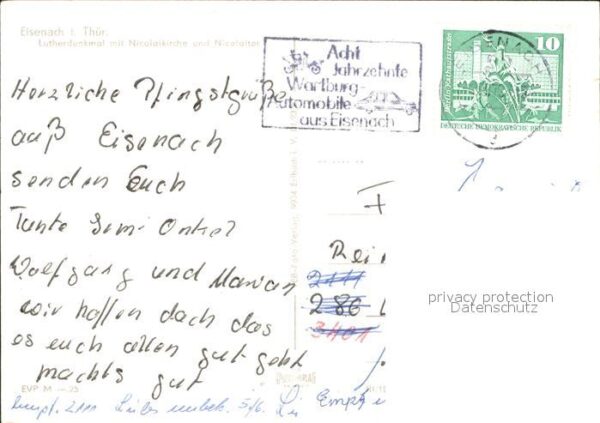 Eisenach i. Thür.
Lutherdenkmal mit Nicolaikirche und Nicolaitor
Acht
Jahrzehnte
Wartburg-
Automobile
aus Eisenach
10
DEUTSCHE DEMOKRATISCHE REPUBLIK
Herzliche Pfingstgrüße
auß Eisenach
senden Euch
Tante Onkel
Wolfgang und Marion
wir hoffen dach das
es euch allen gut geht
machts gut
Rei
2111
286
3401
privacy protection
Datenschutz
EVP M —.25
2111 5/6.